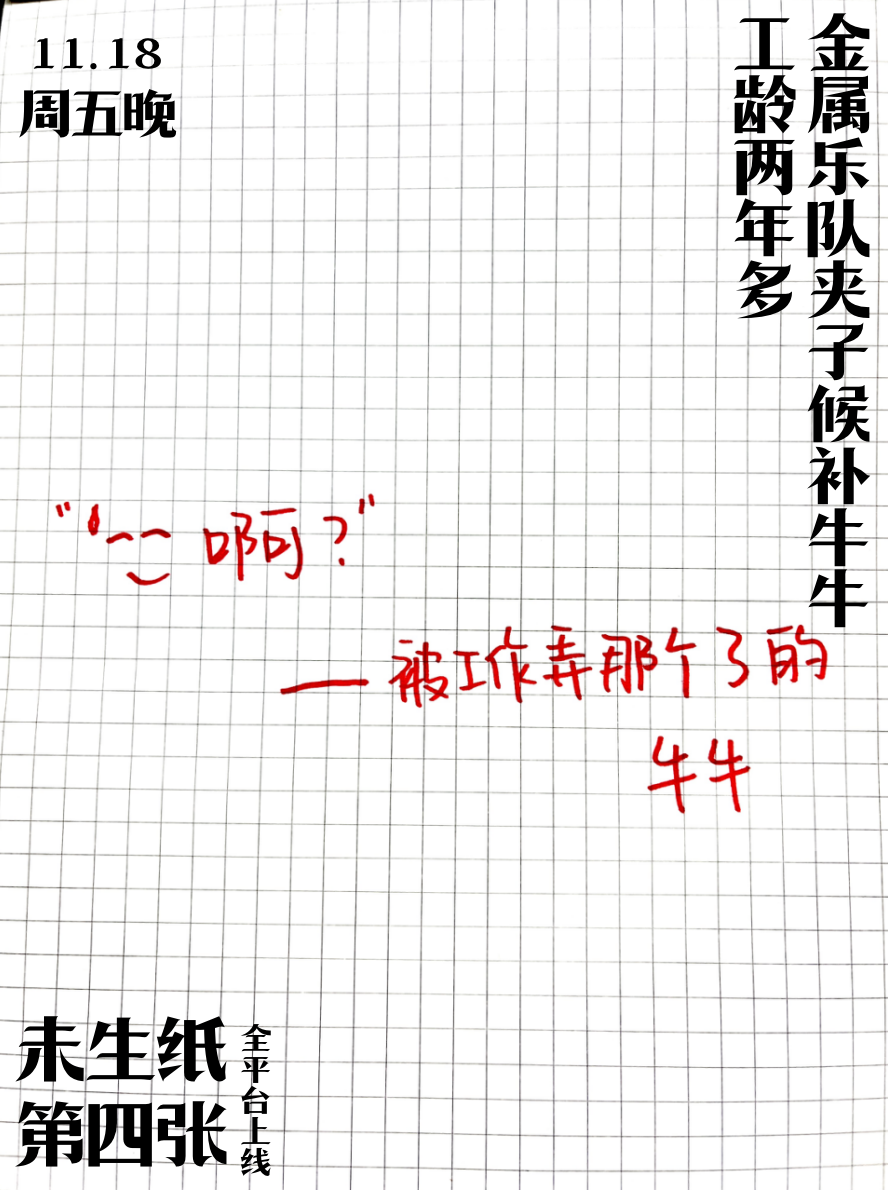 11.18
周五晚
金属乐队夹子候补牛牛
工龄两年多
“ 啊？”
—被工作弄那个了的
牛牛
未生纸
第四张
全平台上线